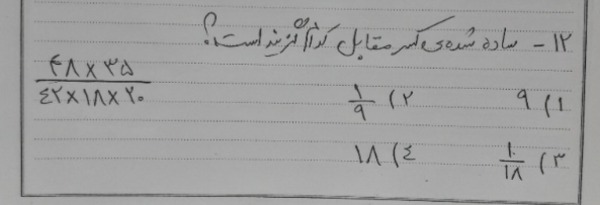 ۱۲- ساده شده‌ی کسر مقابل کدام گزینه است؟
۴۸×۳۵
۴۲×۱۸×۲۰
۱) ۹ ۲) ۱/۹
۳) ۱۰/۱۸ ۴) ۱۸